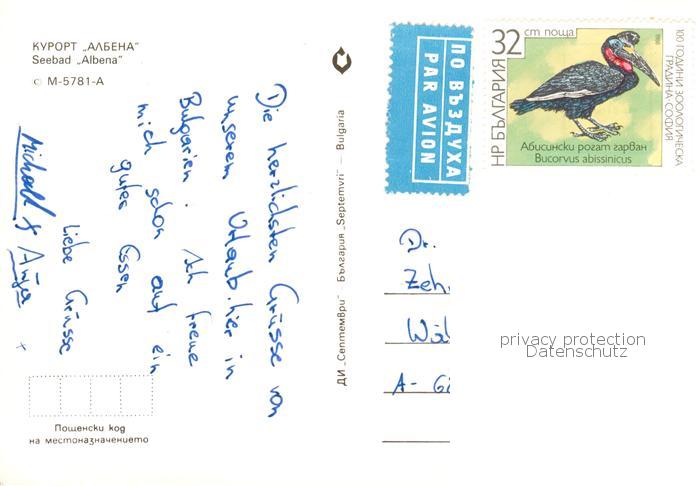 КУРОРТ „АЛБЕНА"
Seebad „Albena"
© М-5781-А
Die herzlichsten Grüsse von
unserem Urlaub hier in
Bulgarien. Ich freue
mich schon auf ein
gutes Essen
Liebe Grüsse
Michael & Anja
Пощенски код
на местоназначението
ДИ „Септември" България „Septemvri" — Bulgaria
ПО ВЪЗДУХА
PAR AVION
32 ст поща
НР БЪЛГАРИЯ
100 ГОДИНИ ЗООЛОГИЧЕСКА
ГРАДИНА·СОФИЯ
Абисински рогат гарван
Bucorvus abissinicus
Dr.
Zeh
A-
privacy protection
Datenschutz